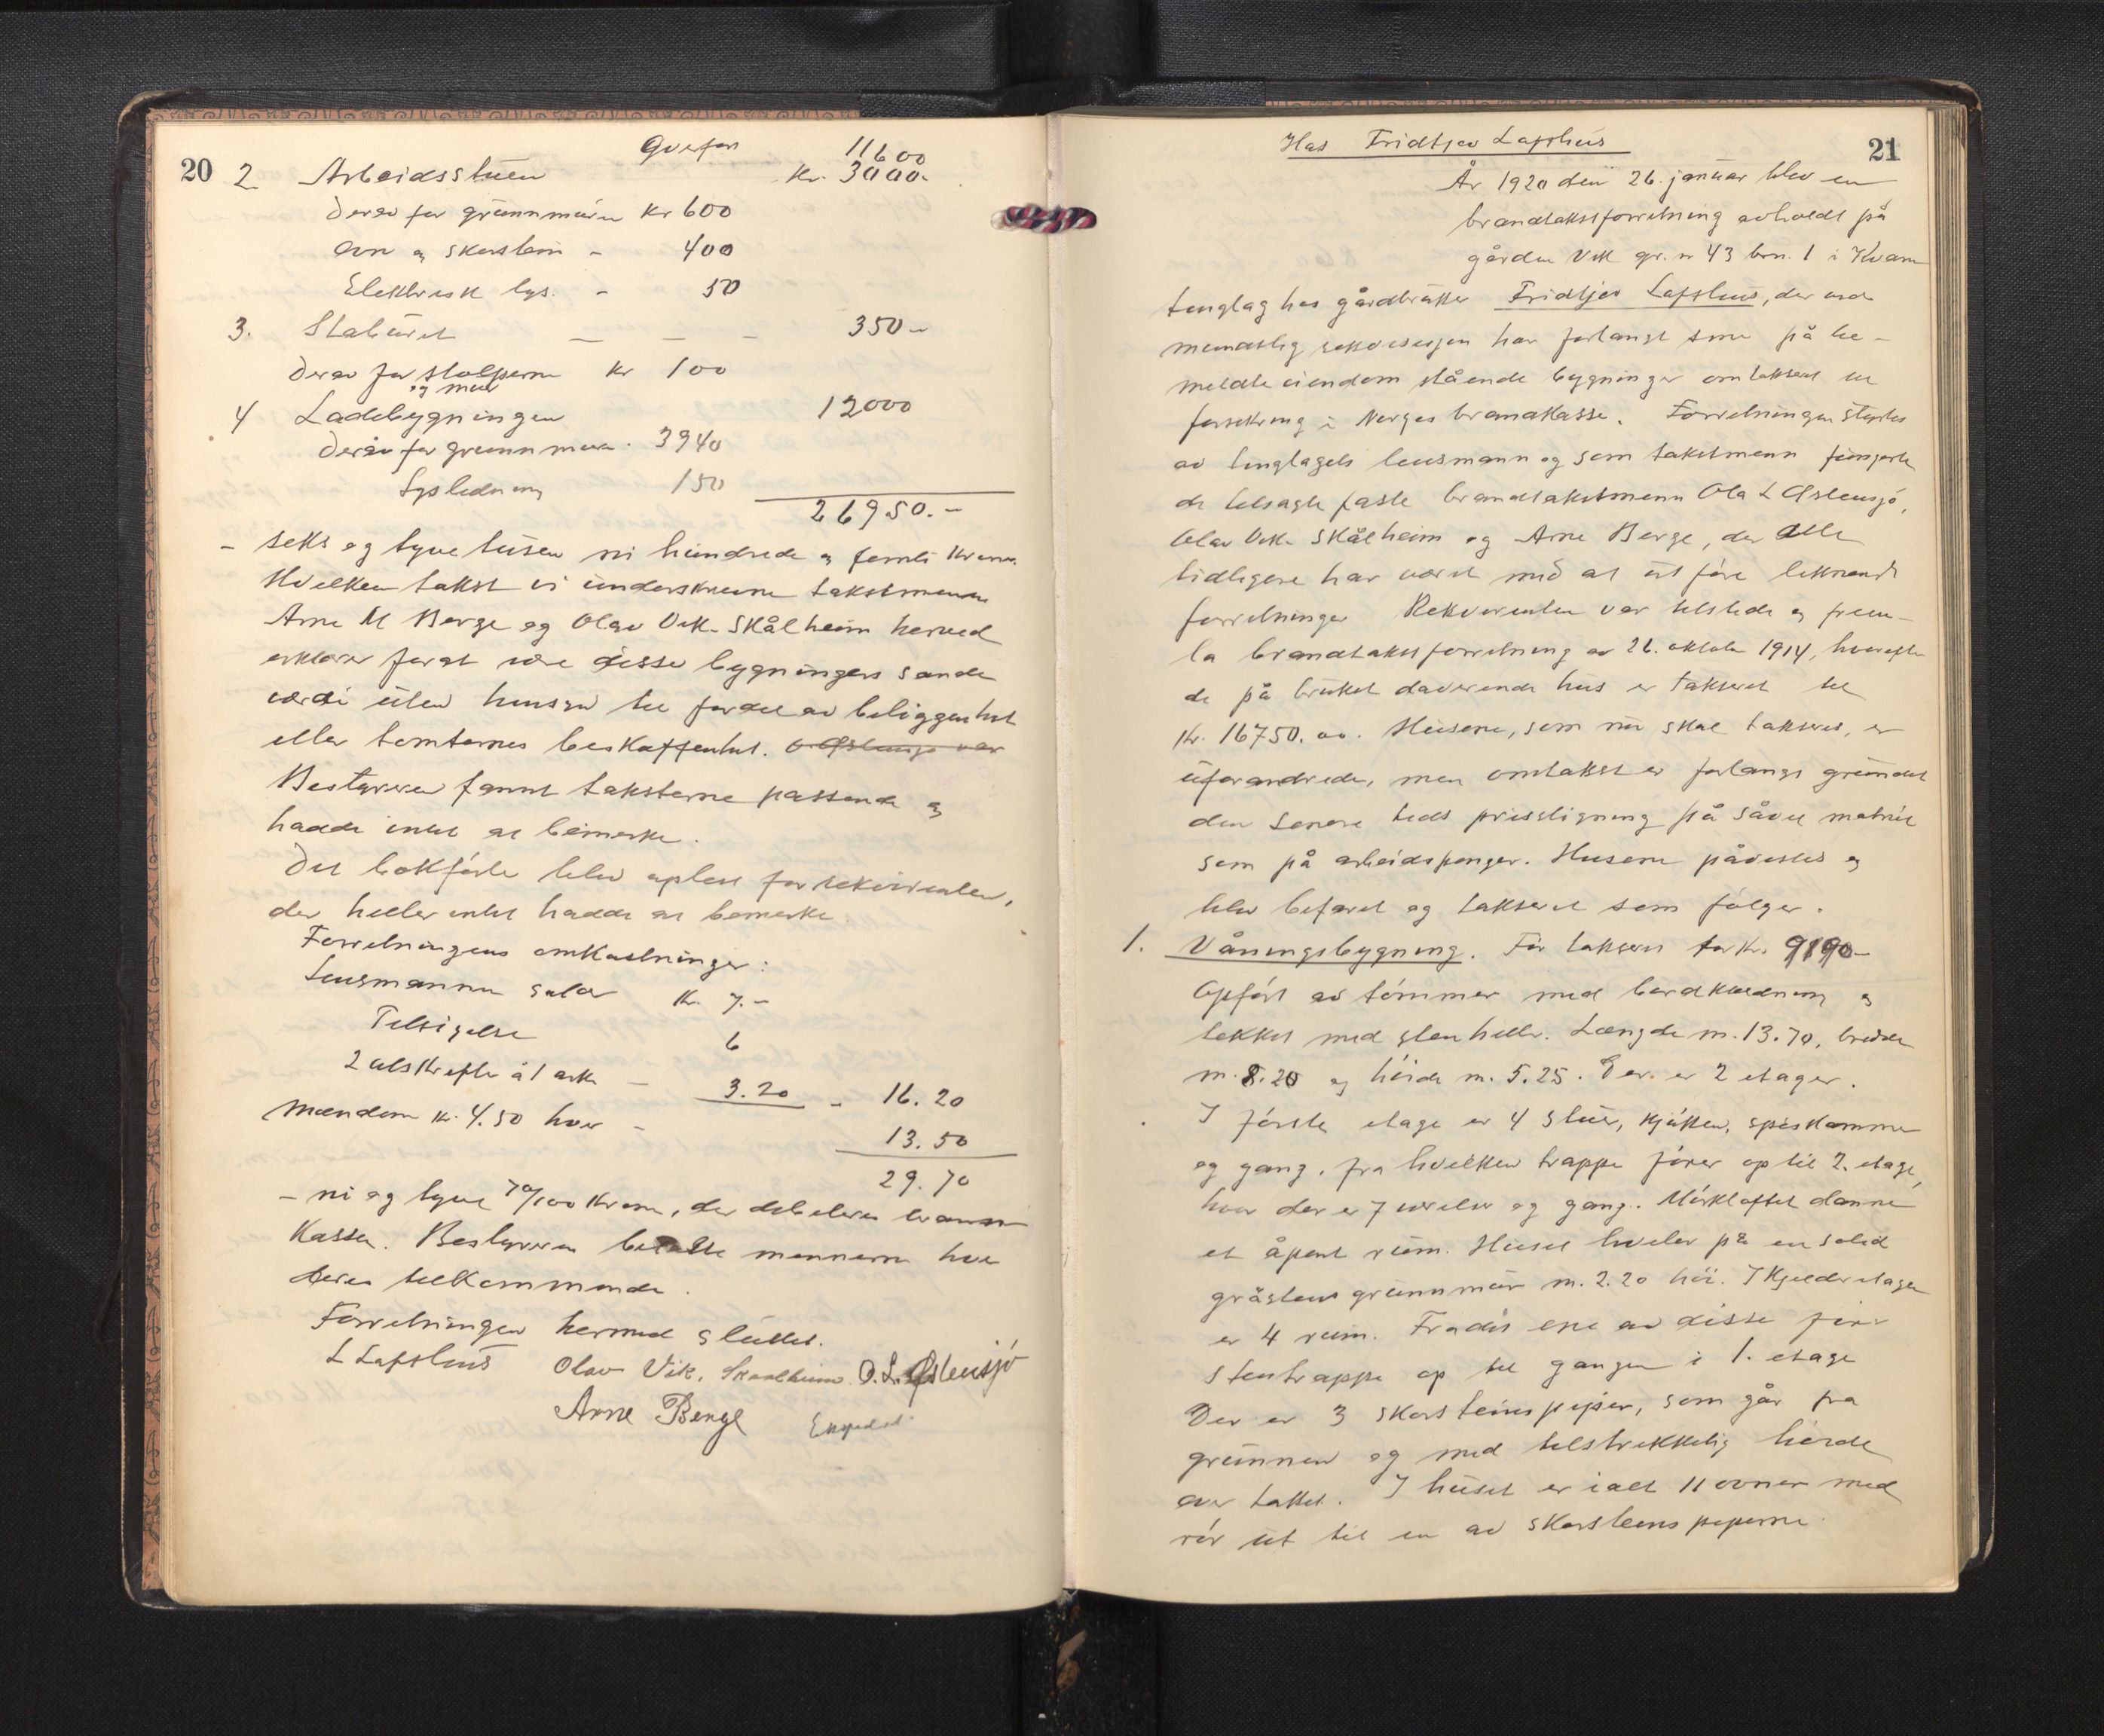 20
Overført 11600
2 Arbeidsstuen Kr. 3000.
Derav for grunnmuren Kr 600
Ovn og skorstein - 400
Elektrisk lys. - 50
3. Staburet — — - 350 -
Derav for stolperne Kr 100
og mur
4 Ladebygningen 12000
Derav for grunnmuren. 3940
Lysledning 150
26950.-
- seks og tyve tusen ni hundrede og femti kroner.
Hvilken takst vi underskrevne takstmenn
Arne M Berge og Olav Vik-Skålheim herved
erklærer for at være disse bygningers sande
værdi uten hensyn til fordel av beliggenhet
eller tomternes beskaffenhet. O Østensjø var
Bestyreren fannt taksterne passende og
hadde intet at bemerke.
Det bokførte blev oplest for rekvirenten,
der heller intet hadde at bemerke.
Forretningens omkostninger:
Lensmannen salær Kr. 7.-
Tilsigelse 6
2 utskrifter à 1 ark — 3.20 - 16.20
Mændene kr. 4.50 hver - 13.50
29.70
- ni og tyve 70/100 kroner, der debiteres brann
kassen. Bestyreren betalte mennerne hver
deres tilkommende.
Forretningen hermed sluttet.
L Lofthus Olav Vik. Skaalheim O. L. Østensjø
Arne Berge Expedert
21
Hos Fridtjov Lofthus
År 1920 den 26. januar blev en
brandtakstforretning avholdt på
gården Vik gr. nr 43 brn. 1 i Kvam
tinglag hos gårdbruker Fridtjov Lofthus, der ved
mundtlig rekvisisjon har forlangt sine på be-
meldte eiendom stående bygninger omtaksert til
forsikring i Norges brandkasse. Forretningen styrtes
av tinglagets lensmann og som takstmenn fungerte
de tilsagte faste brandtakstmenn Ola L Østensjø,
Olav Vik-Skålheim og Arne Berge, der alle
tidligere har været med at utføre liknende
forretninger Rekvirenten var tilstede og frem-
la brandtakstforretning av 26. oktober 1914, hvorefter
de på bruket daværende hus er taksert til
Kr. 16750.00. Husene, som nu skal takseres, er
uforandrede, men omtakst er forlangt grundet
den senere tids prisstigning på såvel materiel
som på arbeidspenger. Husene påvistes og
blev befaret og taksert som følger.
1. Våningsbygning. Før taksert for kr. 9190-
Opført av tømmer med bordklædning og
tekket med stenheller. Længde m. 13.70, bredde
m. 8.20 og høide m. 5.25. Der er 2 etager.
I første etage er 4 stuer, kjøkken, spiskammer
og gang, fra hvilken trappe fører op til 2. etage,
hvor der er 7 værelser og gang. Mørkloftet danner
et åpent rum. Huset hviler på en solid
gråstens grunnmur m. 2.20 høi. I kjelderetagen
er 4 rum. Fra det ene av disse fører
stentrappe op til gangen i 1. etage
Der er 3 skorsteinspiper, som går fra
grunnen og med tilstrekkelig høide
over taket. I huset er ialt 11 ovner med
rør ut til en av skorsteenspiperne